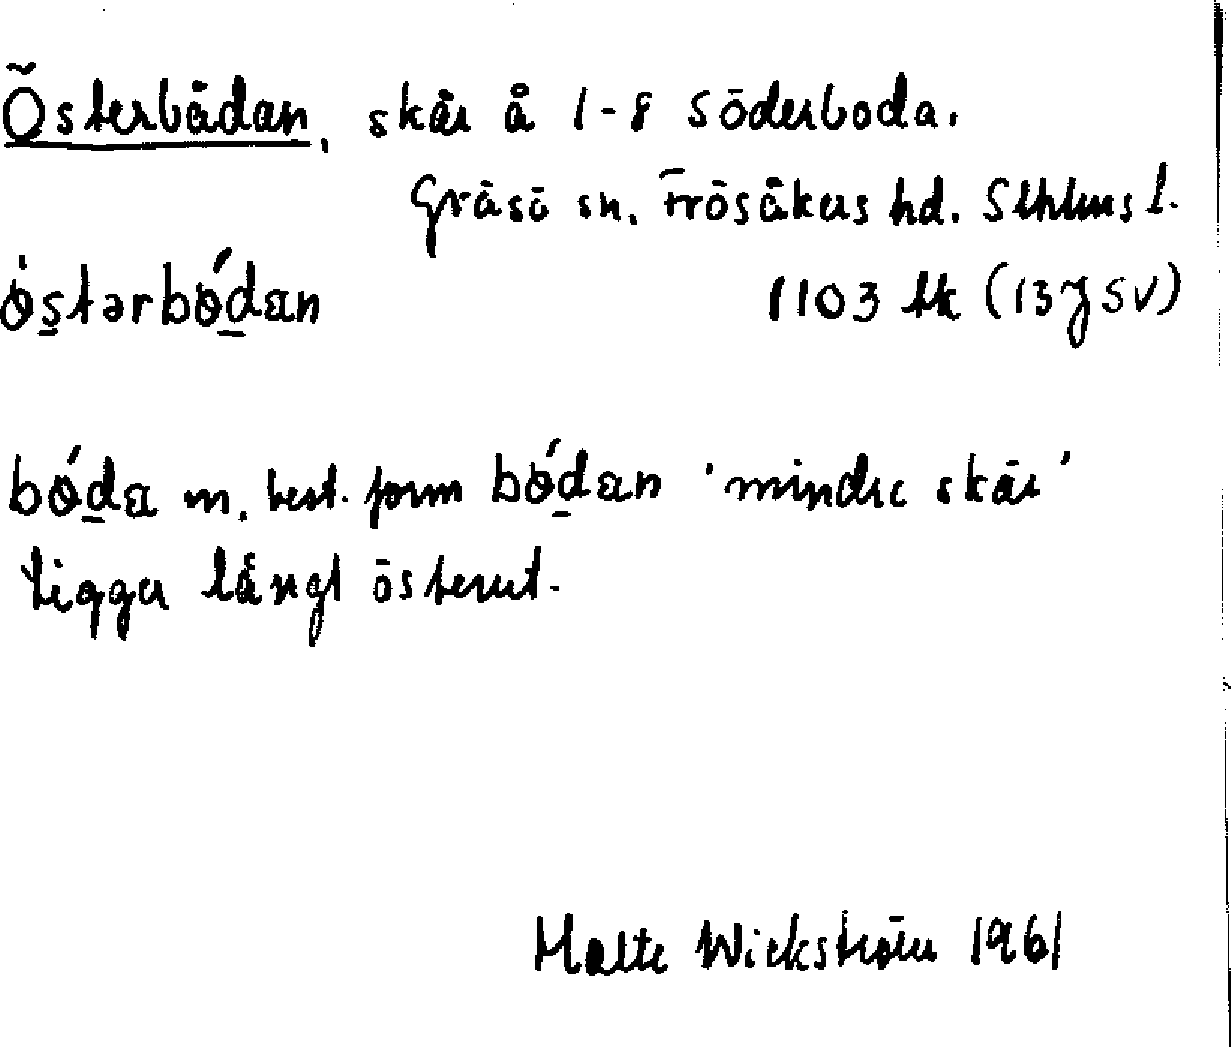 Österbådan, skär å 1-8 Söderboda.
Gräsö sn. Frösåkers hd. Sthlms l.
ö́stərbó̱dan 1103 tk (13J SV)
bó̱da m. best. form bó̱dan 'mindre skär'
Ligger långt österut.
Malte Wickström 1961